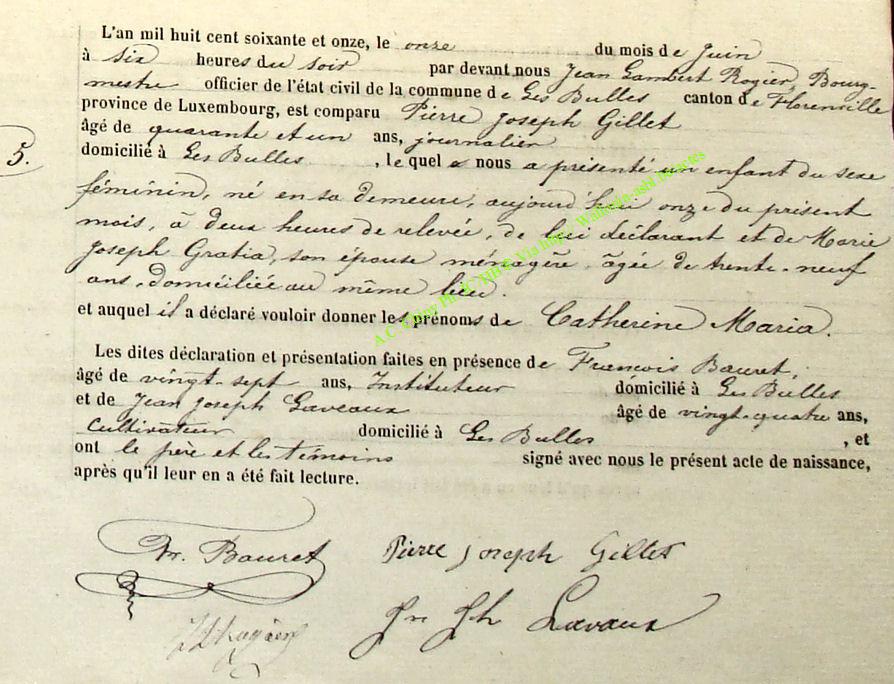 L'an mil huit cent soixante et onze, le onze du mois de Juin
à six heures du soir par devant nous Jean Lambert Rogier, Bourg-
mestre officier de l'état civil de la commune de Les Bulles canton de Florenville
province de Luxembourg, est comparu Pierre Joseph Gillet
âgé de quarante et un ans, journalier
5.
domicilié à Les Bulles , le quel a nous a présenté un enfant du sexe
féminin, né en sa demeure, aujourd'hui onze du présent
mois, à deux heures de relevée, de lui déclarant et de Marie
Joseph Gratia, son épouse ménagère, âgée de trente-neuf
ans, domiciliée au même lieu.
et auquel il a déclaré vouloir donner les prénoms de Catherine Maria.
Les dites déclaration et présentation faites en présence de Francois Bauret,
âgé de vingt-sept ans, Instituteur domicilié à Les Bulles
et de Jean Joseph Laveaux âgé de vingt-quatre ans,
Cultivateur domicilié à Les Bulles , et
ont le père et les témoins signé avec nous le présent acte de naissance,
après qu'il leur en a été fait lecture.
Fr. Bauret Pierre Joseph Gillet
Jn Jh Lavaux